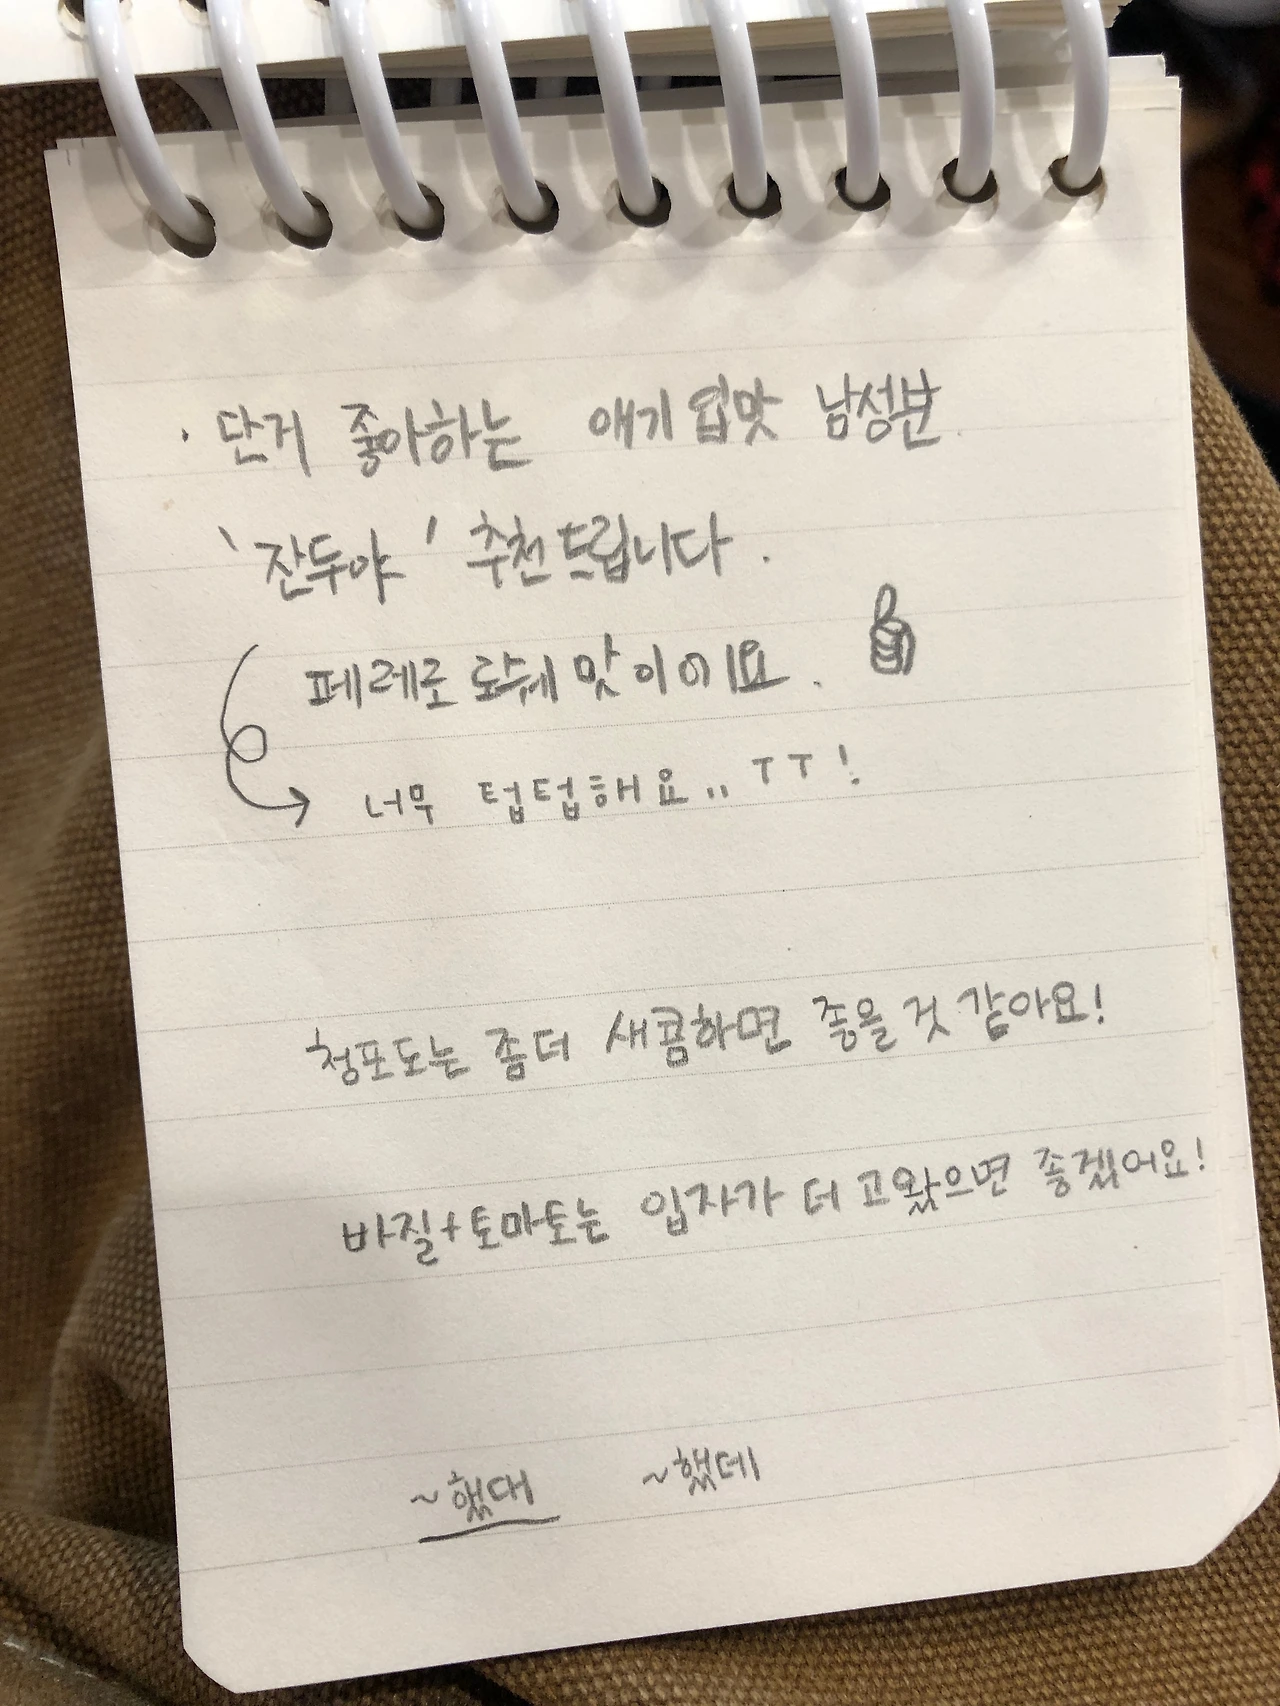 · 단거 좋아하는 애기 입맛 남성분.
'잔두야' 추천드립니다.
페레로 로쉐 맛이에요.
→ 너무 텁텁해요.. ㅜㅜ!
청포도는 좀더 새콤하면 좋을 것 같아요!
바질+토마토는 입자가 더 고왔으면 좋겠어요!
~했대 ~했데